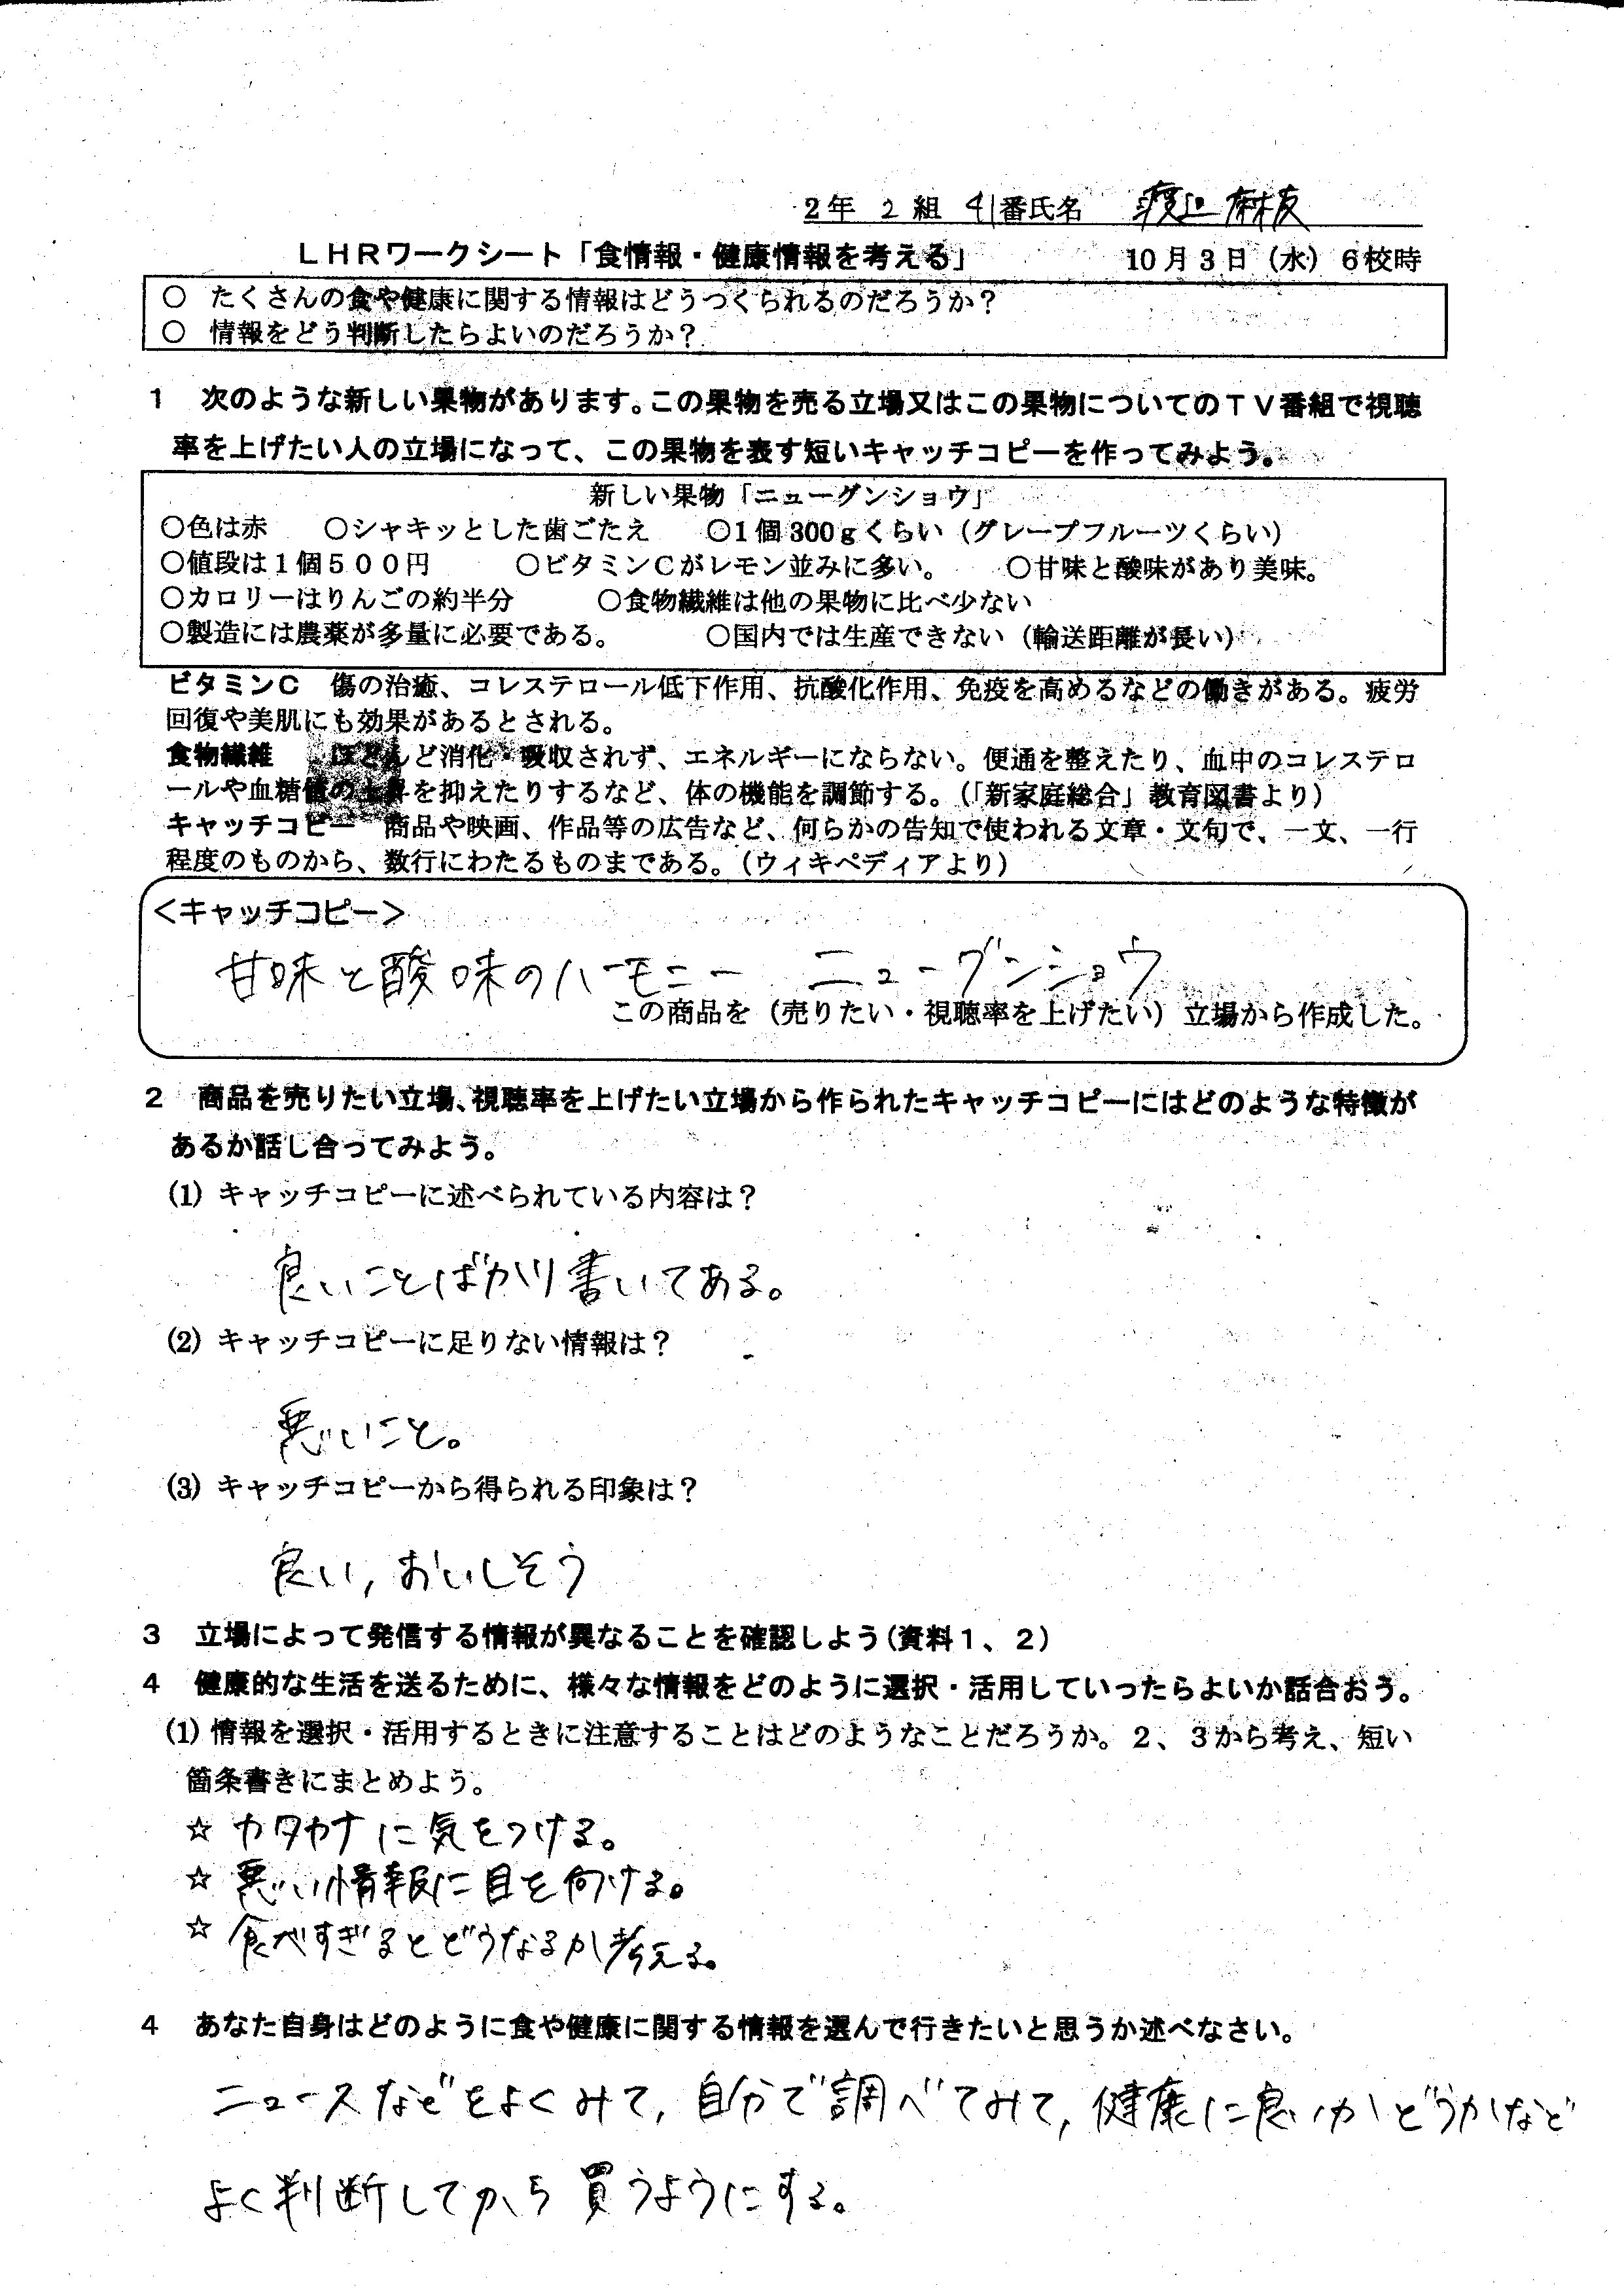 2年 2 組 41番氏名 渡辺 麻友
LHRワークシート「食情報・健康情報を考える」 10月3日（水）6校時
○ たくさんの食や健康に関する情報はどうつくられるのだろうか？
○ 情報をどう判断したらよいのだろうか？
1 次のような新しい果物があります。この果物を売る立場又はこの果物についてのTV番組で視聴
率を上げたい人の立場になって、この果物を表す短いキャッチコピーを作ってみよう。
新しい果物「ニューグンショウ」
○色は赤 ○シャキッとした歯ごたえ ○1個300gくらい（グレープフルーツくらい）
○値段は1個500円 ○ビタミンCがレモン並みに多い。 ○甘味と酸味があり美味。
○カロリーはりんごの約半分 ○食物繊維は他の果物に比べ少ない
○製造には農薬が多量に必要である。 ○国内では生産できない（輸送距離が長い）
ビタミンC 傷の治癒、コレステロール低下作用、抗酸化作用、免疫を高めるなどの働きがある。疲労
回復や美肌にも効果があるとされる。
食物繊維 ほとんど消化・吸収されず、エネルギーにならない。便通を整えたり、血中のコレステロ
ールや血糖値の上昇を抑えたりするなど、体の機能を調節する。（「新家庭総合」教育図書より）
キャッチコピー 商品や映画、作品等の広告など、何らかの告知で使われる文章・文句で、一文、一行
程度のものから、数行にわたるものまである。（ウィキペディアより）
＜キャッチコピー＞
甘味と酸味のハーモニー ニューグンショウ
この商品を（売りたい・視聴率を上げたい）立場から作成した。
2 商品を売りたい立場、視聴率を上げたい立場から作られたキャッチコピーにはどのような特徴が
あるか話し合ってみよう。
(1) キャッチコピーに述べられている内容は？
良いことばかり書いてある。
(2) キャッチコピーに足りない情報は？
悪いこと。
(3) キャッチコピーから得られる印象は？
良い, おいしそう
3 立場によって発信する情報が異なることを確認しよう（資料1、2）
4 健康的な生活を送るために、様々な情報をどのように選択・活用していったらよいか話合おう。
(1) 情報を選択・活用するときに注意することはどのようなことだろうか。2、3から考え、短い
箇条書きにまとめよう。
☆ カタカナに気をつける。
☆ 悪い情報に目を向ける。
☆ 食べすぎるとどうなるか考える。
4 あなた自身はどのように食や健康に関する情報を選んで行きたいと思うか述べなさい。
ニュースなどをよくみて, 自分で調べてみて, 健康に良いかどうかなど
よく判断してから買うようにする。